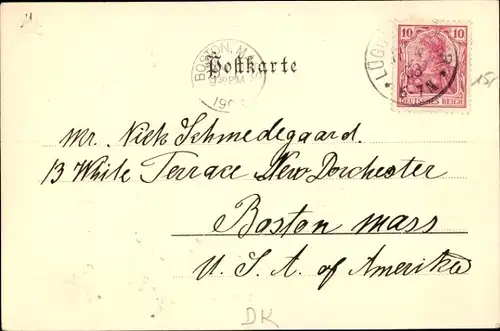 10 10
DEUTSCHES REICH
BOSTON, M
930 PM
190
Postkarte
Mr. Niels Schmedegaard.
13 White Terrace New Dorchester
Boston Mass
U. S. A. of Amerika
151
DK